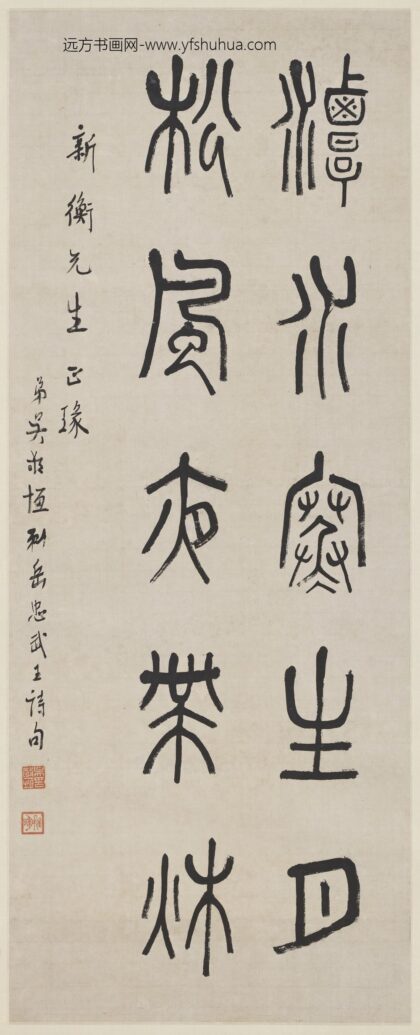 远方书画网-www.yfshuhua.com
潭水寒生月
松风夜带秋
新衡先生正瑑
弟吴敬恒 岳忠武王诗句